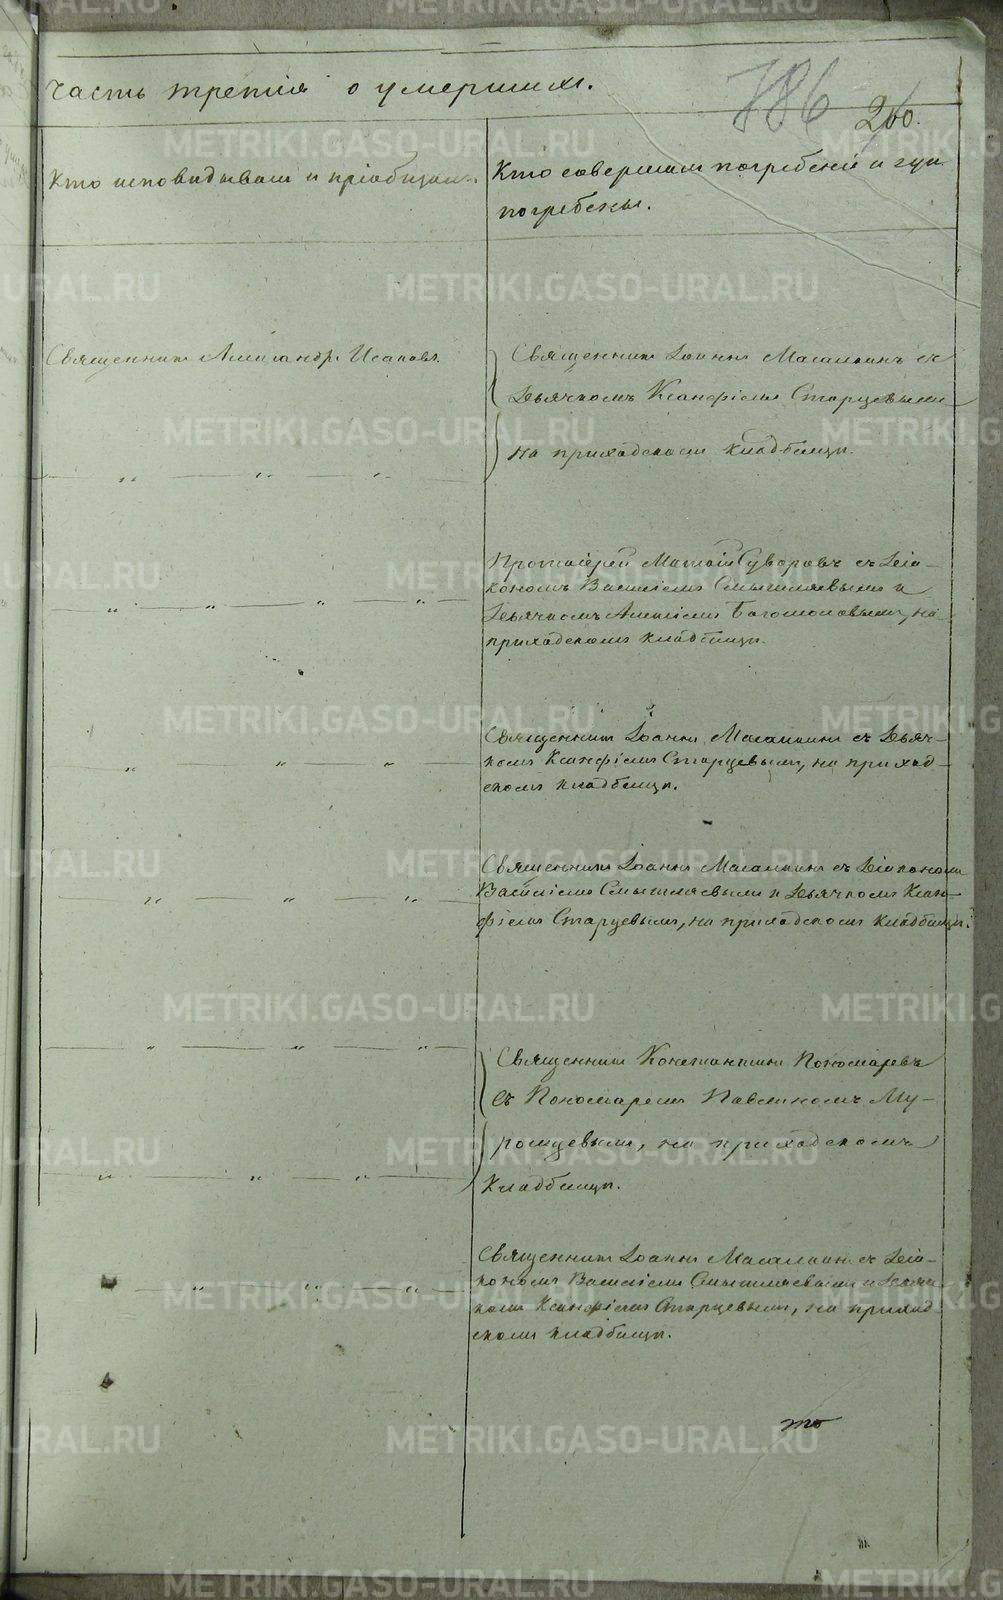 часть третія о умершихъ.
786
260.
Кто исповѣдывалъ и пріобщалъ.
Кто совершалъ погребеніе и гдѣ
погребены.
Священникъ Александръ Исаковъ.
Священникъ Іоаннъ Масалкинъ съ
Дьячкомъ Ксанфіемъ Старцевымъ
на приходскомъ кладбищѣ.
Протоіерей Матѳій Суворовъ съ Діа-
кономъ Василіемъ Смышляевымъ и
Дьячкомъ Алексіемъ Богомоловымъ, на
приходскомъ кладбищѣ.
Священникъ Іоаннъ Масалкинъ съ Дьяч-
комъ Ксанфіемъ Старцевымъ, на приход-
скомъ кладбищѣ.
Священникъ Іоаннъ Масалкинъ съ Діакономъ
Василіемъ Смышляевымъ и Дьячкомъ Ксан-
фіемъ Старцевымъ, на приходскомъ кладбищѣ.
Священникъ Константинъ Пономаревъ
съ Пономаремъ Павлиномъ Му-
ромцевымъ, на приходскомъ
кладбищѣ.
Священникъ Іоаннъ Масалкинъ съ Діа-
кономъ Василіемъ Смышляевымъ и Дьяч-
комъ Ксанфіемъ Старцевымъ, на приход-
скомъ кладбищѣ.
то
METRIKI.GASO-URAL.RU